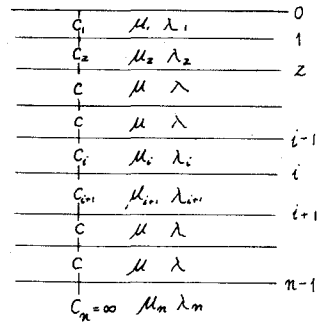 0
C₁ μ₁ λ₁
1
C₂ μ₂ λ₂
2
C μ λ
C μ λ
i-1
Cᵢ μᵢ λᵢ
i
Cᵢ₊₁ μᵢ₊₁ λᵢ₊₁
i+1
C μ λ
C μ λ
n-1
Cₙ=∞ μₙ λₙ